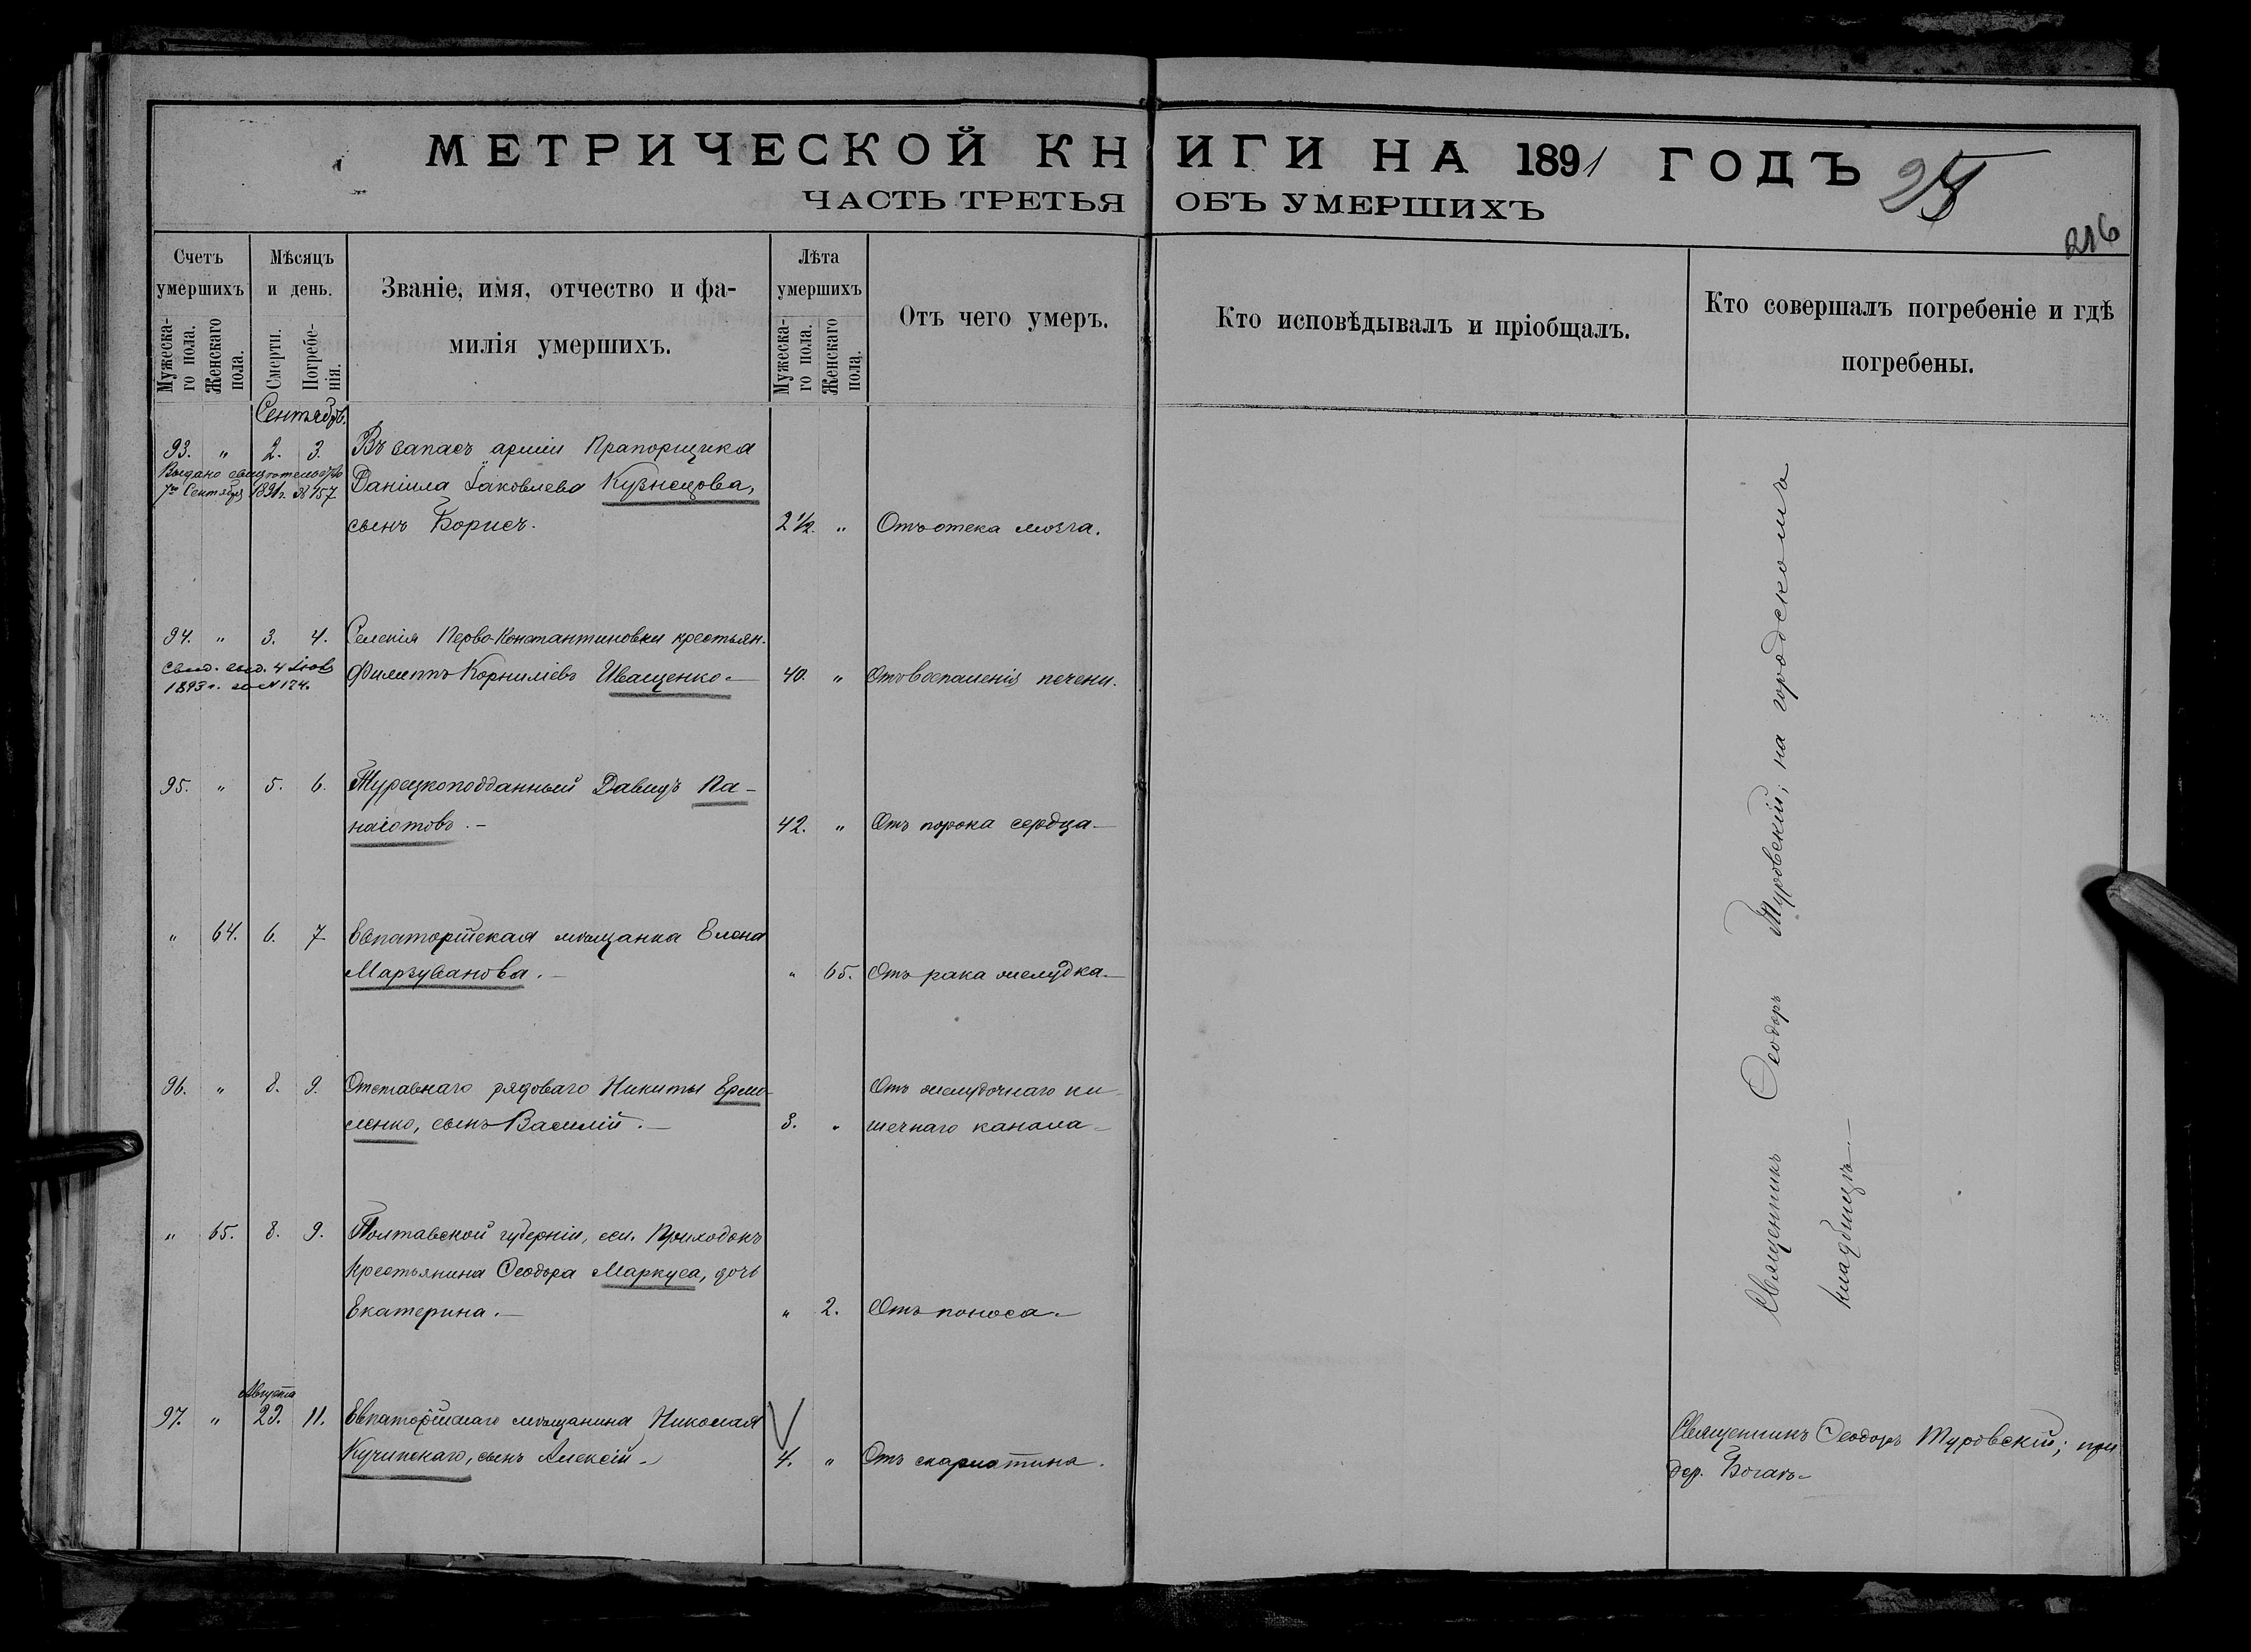 МЕТРИЧЕСКОЙ КНИГИ НА 1891 ГОДЪ
ЧАСТЬ ТРЕТЬЯ ОБЪ УМЕРШИХЪ
216
Счетъ умершихъ
Мужеска-го пола.
Женскаго пола.
Мѣсяцъ и день.
Смерти.
Погребе-нія.
Званіе, имя, отчество и фа-
милія умершихъ.
Лѣта умершихъ
Мужеска-го пола.
Женскаго пола.
Отъ чего умеръ.
Кто исповѣдывалъ и пріобщалъ.
Кто совершалъ погребеніе и гдѣ
погребены.
Сентябрь.
93. " 2. 3. Въ запасъ арміи Прапорщика
Выдано свидѣтельство
7го Сентября 1891г. № 157
Даніила Іаковлева Кузнецова,
сынъ Борисъ. 2 1/2. " Отъ отека мозга.
94. " 3. 4. Селенія Перво-Константиновки крестьян.
1893г. за № 174.
Филиппъ Корниліевъ Иващенко.— 40. " Отъ воспаленія печени.
95. " 5. 6. Турецкоподданный Давидъ Па-
наіотовъ.— 42. " Отъ порока сердца—
" 64. 6. 7 Евпаторійская мѣщанка Елена
Марзуванова.— " 65. Отъ рака желудка.—
96. " 8. 9. Отставнаго рядоваго Никиты Ермо-
ленко, сынъ Василій.— 8. " Отъ желудочнаго ки-
шечнаго канала—
" 65. 8. 9. Полтавской губерніи, сел. Приходокъ
крестьянина Ѳеодора Маркуса, дочь
Екатерина.— " 2. Отъ поноса.—
Священникъ Ѳеодоръ Туровскій; на городскомъ
кладбищѣ—
Августа
97. " 29. 11. Евпаторійскаго мѣщанина Николая
Кучинскаго, сынъ Алексій.— 4. " Отъ скарлатина.
Священникъ Ѳеодоръ Туровскій; при
дер. Богай.—